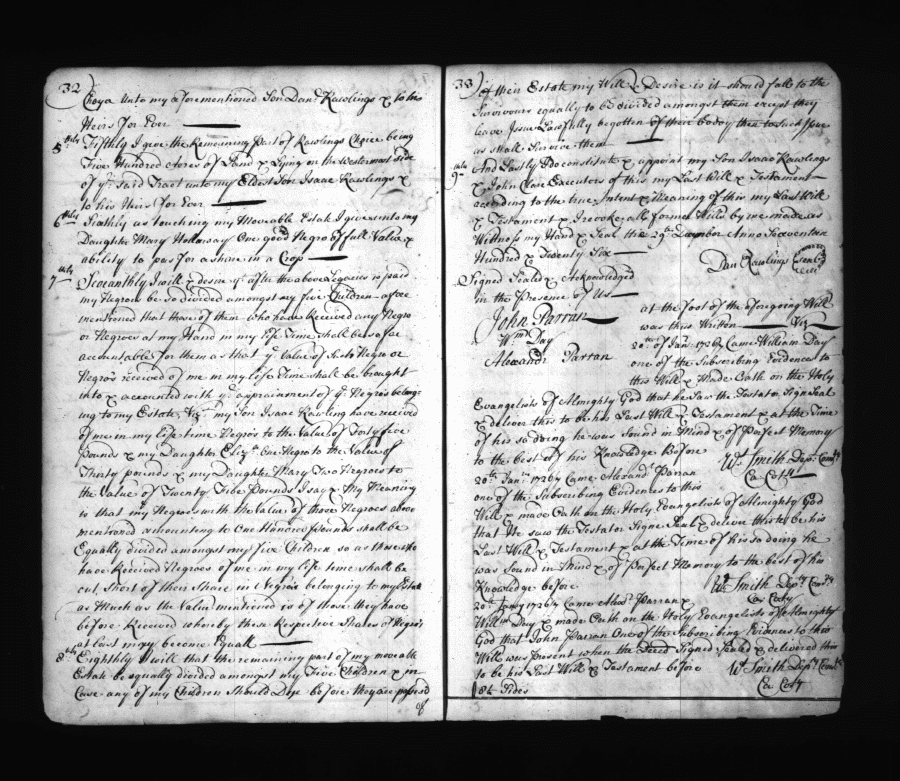 32
Unto my aforementioned Son Danl. Rawlings & to his
Heirs for Ever
5thly Fifthly I give the Remaining part of Rawlings Choice being
Five Hundred Acres of Land & Lying on the Westermost side
of ye. said Tract unto my Eldest Son Isaac Rawlings &
to his Heirs for Ever
6thly Sixthly as touching my Moveable Estate I give unto my
Daughter Mary Holloway One good Negro of full Value &
ability to pass for a share in a Crop
7thly Seventhly I will & desire yt. after the above Legacies is paid
my Negroes be so divided amongst my five Children afore
mentioned that those of them who have Received any Negro
or Negroes at my Hand in my life Time shall be so far
accountable for them as that ye. Value of such Negro or
Negro's received of me in my life Time shall be brought
into & accounted with ye. appraisment of ye. Negro's belong-
ing to my Estate, Viz. my Son Isaac Rawlings have received
of me in my life time Negro's to the Value of Forty five
Pounds & my Daughter Eliza. One Negro to the Value of
Thirty pounds & my Daughter Mary Two Negroes to
the Value of Twenty Five Pounds I say & My Meaning
is that my Negroes with the Value of those Negroes above
mentioned amounting to One Hundred Pounds shall be
Equally divided amongst my five Children so as those who
have Received Negroes of me in my life time shall be
cut short of their Share in Negro's belonging to my Estate
as Much as the Value mentioned is of those they have
before Received whereby those Respective Shares of Negro's
at last may become Equall
8thly Eighthly I will that the remaining part of my moveable
Estate be equally divided amongst my Five Children & in
Case any of my Children Should Dye before they are possesd
of
33
of their Estate my Will & Desire is it should fall to the
Survivours equally to be divided amongst them except they
leave Issue Lawfully begotten of their Body then to such Issue
as shall Survive them
9thly And Lastly I Do constitute & appoint my Son Isaac Rawlings
& John Executors of this my Last Will & Testament
according to the true Intent & Meaning of this my Last Will
& Testament & I revoke all former Wills by me made as
Witness my Hand & Seal the 29th December Anno Seventeen
Hundred & Twenty Six
Dan Rawlings Seal
Signed Sealed & Acknowledged
in the Presence of Us
John Parran
Wm. Day
Alexandr Parran
at the foot of the aforegoing Will
was thus Written Viz
20th of Jan. 1726/7 Came William Day
one of the Subscribing Evidences to
this Will & Made Oath on the Holy
Evangelists of Almighty God that he Saw the Testator Signe Seal
& deliver this to be his Last Will & Testament & at the Time
of his so doing he was Sound in Mind & of Perfect Memory
to the best of his Knowledge Before
Wm. Smith Depty. Comry.
Ca Coty
20th Janry. 1726/7 Came Alexandr. Parran
one of the Subscribing Evidences to this
Will & made Oath on the Holy Evangelists of Almighty God
that He saw the Testator Signe Seal & deliver this to be his
Last Will & Testament & at the Time of his so doing he
was Sound in Mind & of Perfect Memory to the best of his
Knowledge before
Wm. Smith Depty. Comry.
Ca Coty
20th Janry 1726/7 Came Alexr. Parran &
Willm. Day & made Oath on the Holy Evangelists of Almighty
God that John Parran One of the Subscribing Evidences to this
Will was present when the Deed Signed Sealed & delivered this
to be his Last Will & Testament before
Wm. Smith Depty. Comry.
Ca Coty
Sides